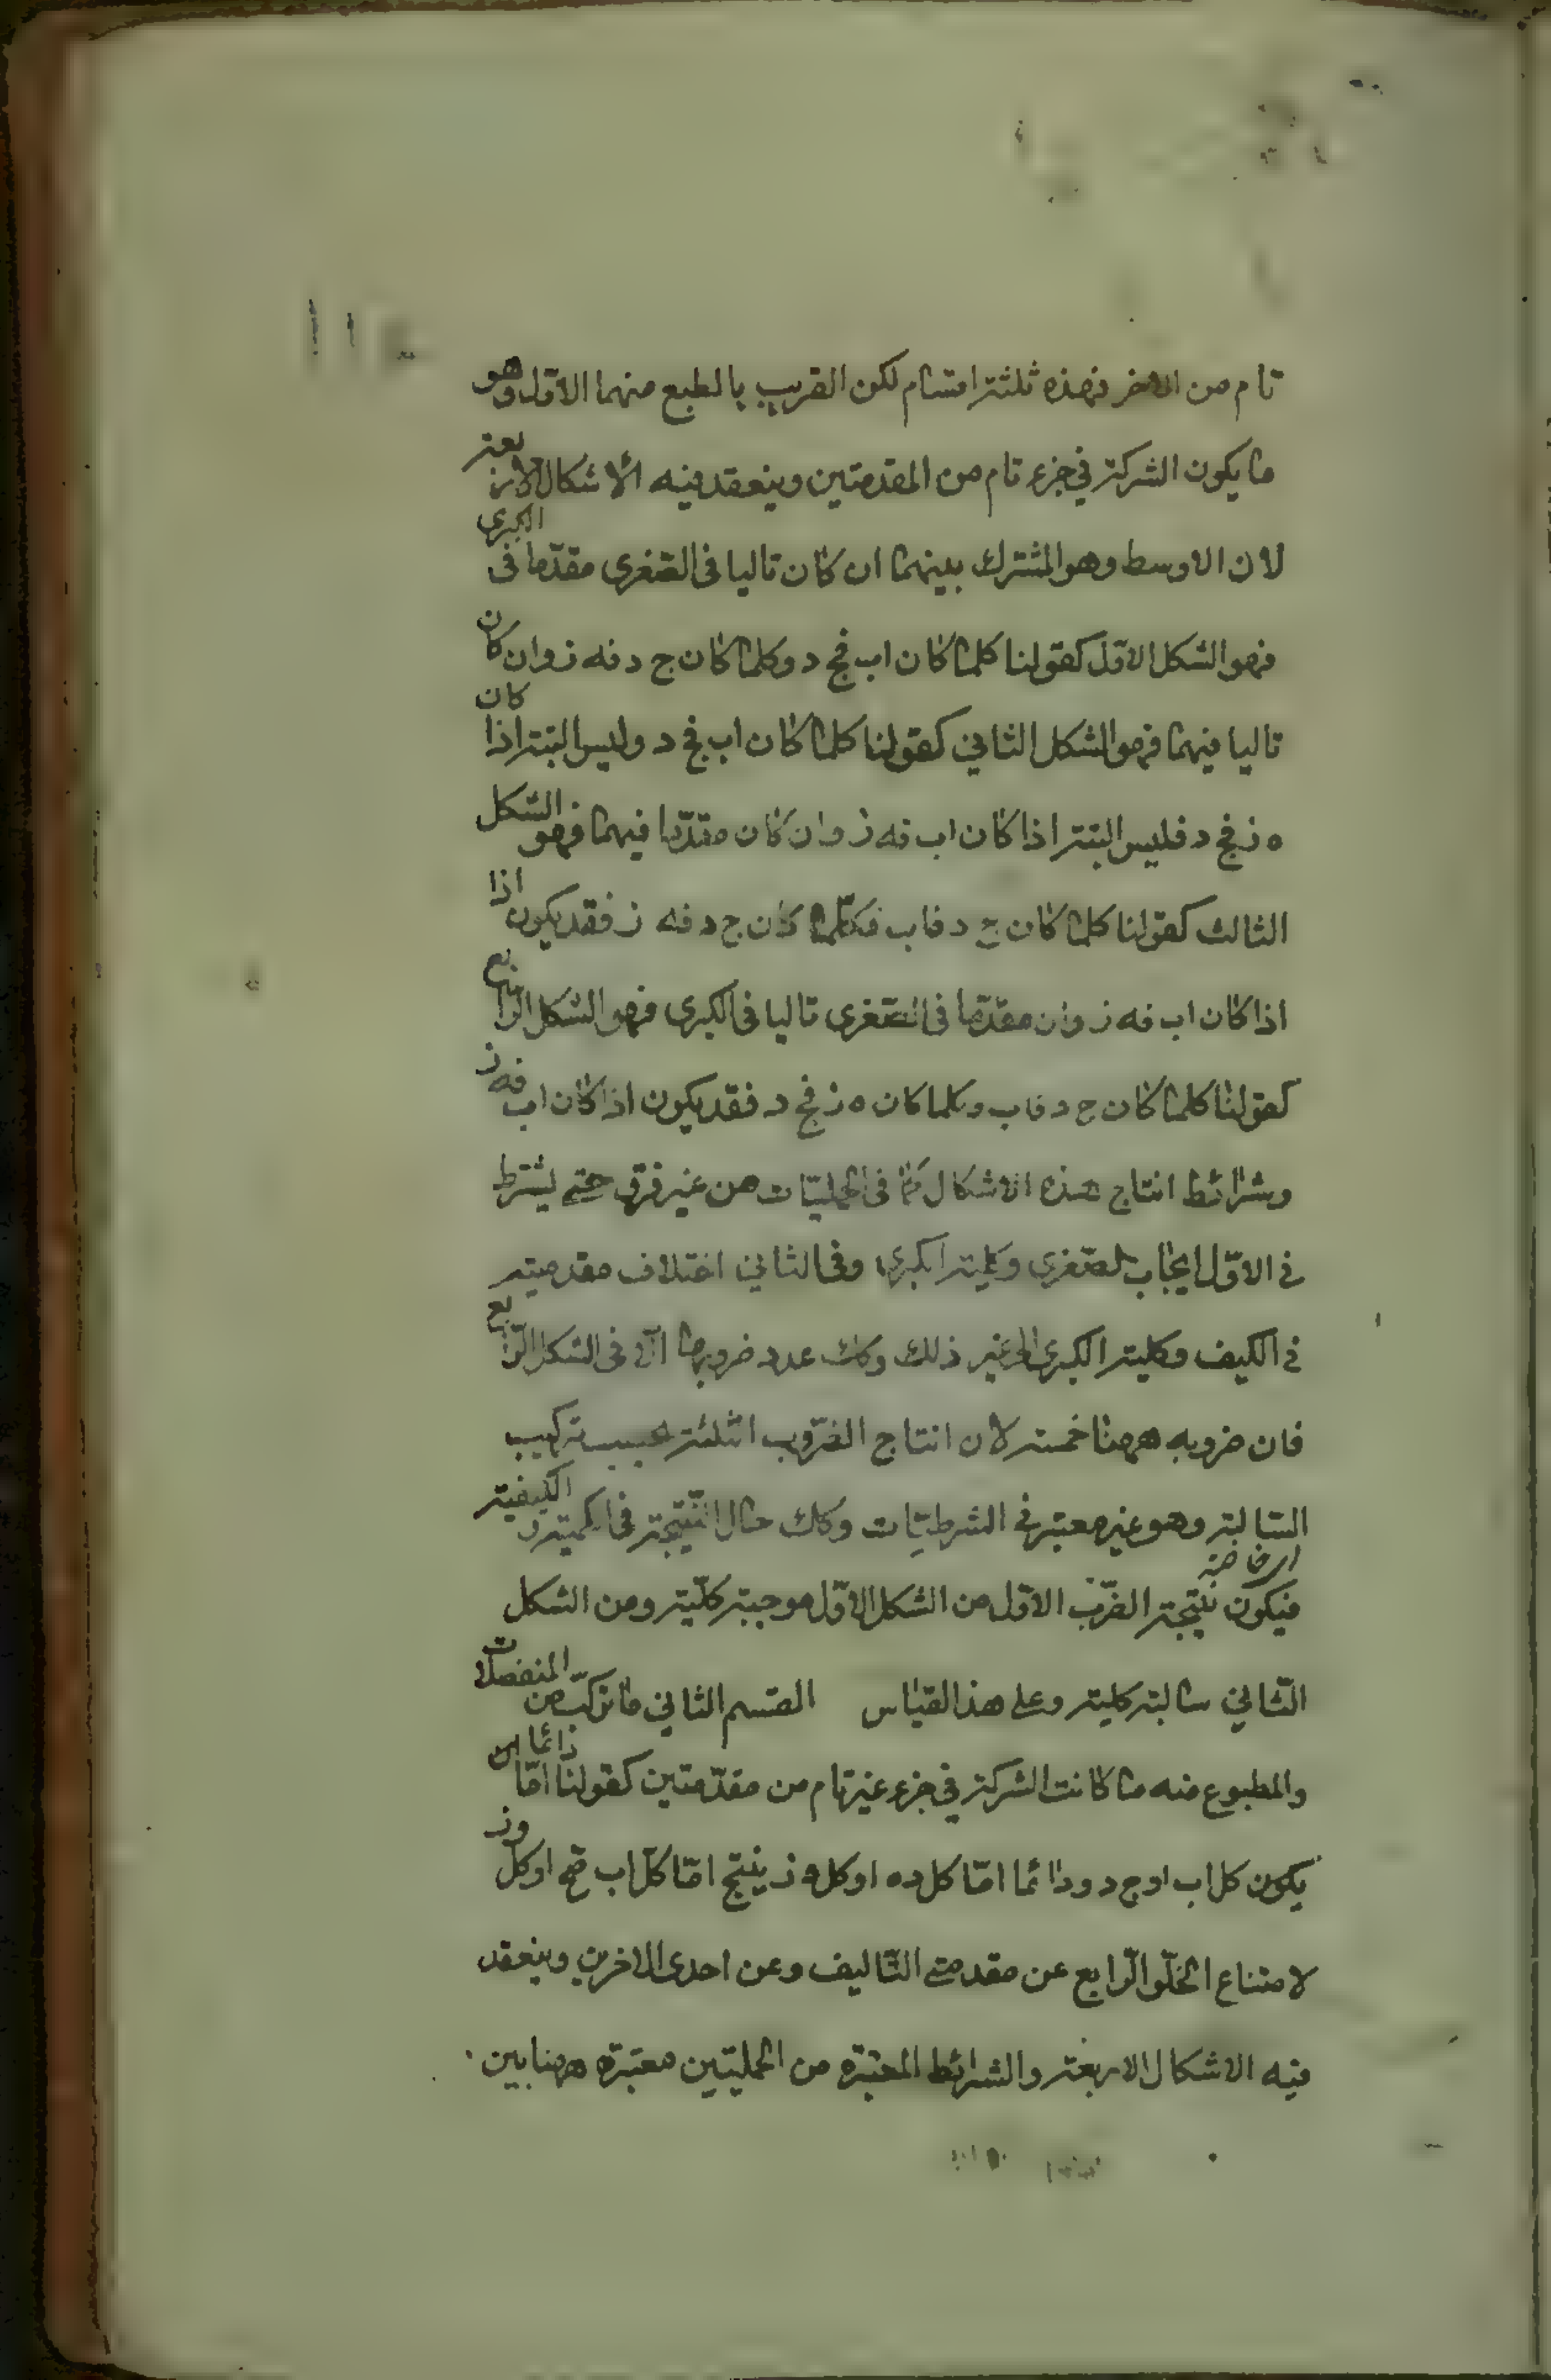 تام من الاخر فهذه ثلثة اقسام لكن القريب بالطبع منهما الاول وهو
ما يكون الشركة في جزء تام من المقدمتين وينعقد فيه الاشكال الاربعة
لان الاوسط وهو المشترك بينهما ان كان تاليا فى الصّغرى مقدّما فى الكبرى
فهو الشكل الاوّل كقولنا كلما كان اب فج د وكلما كان ج د فه ز وان كان
تاليا فيهما فهو الشكل الثاني كقولنا كلما كان اب فج د وليس البتة اذا كان
ه ز فج د فليس البتة اذا كان اب فه ز وان كان مقدّما فيهما فهو الشكل
الثالث كقولنا كلما كان ج د فاب فكلّما كان ج د فه ز فقد يكون اذا
اذا كان اب فه ز وان مقدّما فى الصّغرى تاليا فى الكبرى فهو الشكل الرّابع
كقولنا كلما كان ج د فاب وكلما كان ه ز فج د فقد يكون اذا كان اب فه ز
وشرائط انتاج هذه الاشكال كما فى الحمليّات من غير فرق حتى يشترط
في الاوّل ايجاب الصّغرى وكلية الكبرى وفى الثاني اختلاف مقدميته
في الكيف وكلية الكبرى الى غير ذلك وكك عدد ضروبها الّا فى الشكل الرّابع
فان ضروبه ههنا خمسة لان انتاج الضّروب الثلثة بحسب تركيب
السّالبة وهو غير معتبر في الشرطيّات وكك حال النّتيجة فى الكمية والكيفية
فيكون نتيجة الضّرب الاوّل من الشكل الاوّل موجبة كلّية ومن الشكل
الثّاني سالبة كلية وعلى هذا القياس القسم الثاني ما تركّب من المنفصلات
والمطبوع منه ما كانت الشركة في جزء غير تام من مقدّمتين كقولنا امّا دائما ان
يكون كل اب او ج د ودائما امّا كل د ه او كل و ز ينتج امّا كلّ اب او كل و ز
لامتناع الخلّو الرّابع عن مقدمتي التّاليف وعن احدى الاخرين وينعقد
فيه الاشكال الاربعة والشرائط المعتبرة من الحمليتين معتبرة ههنا بين